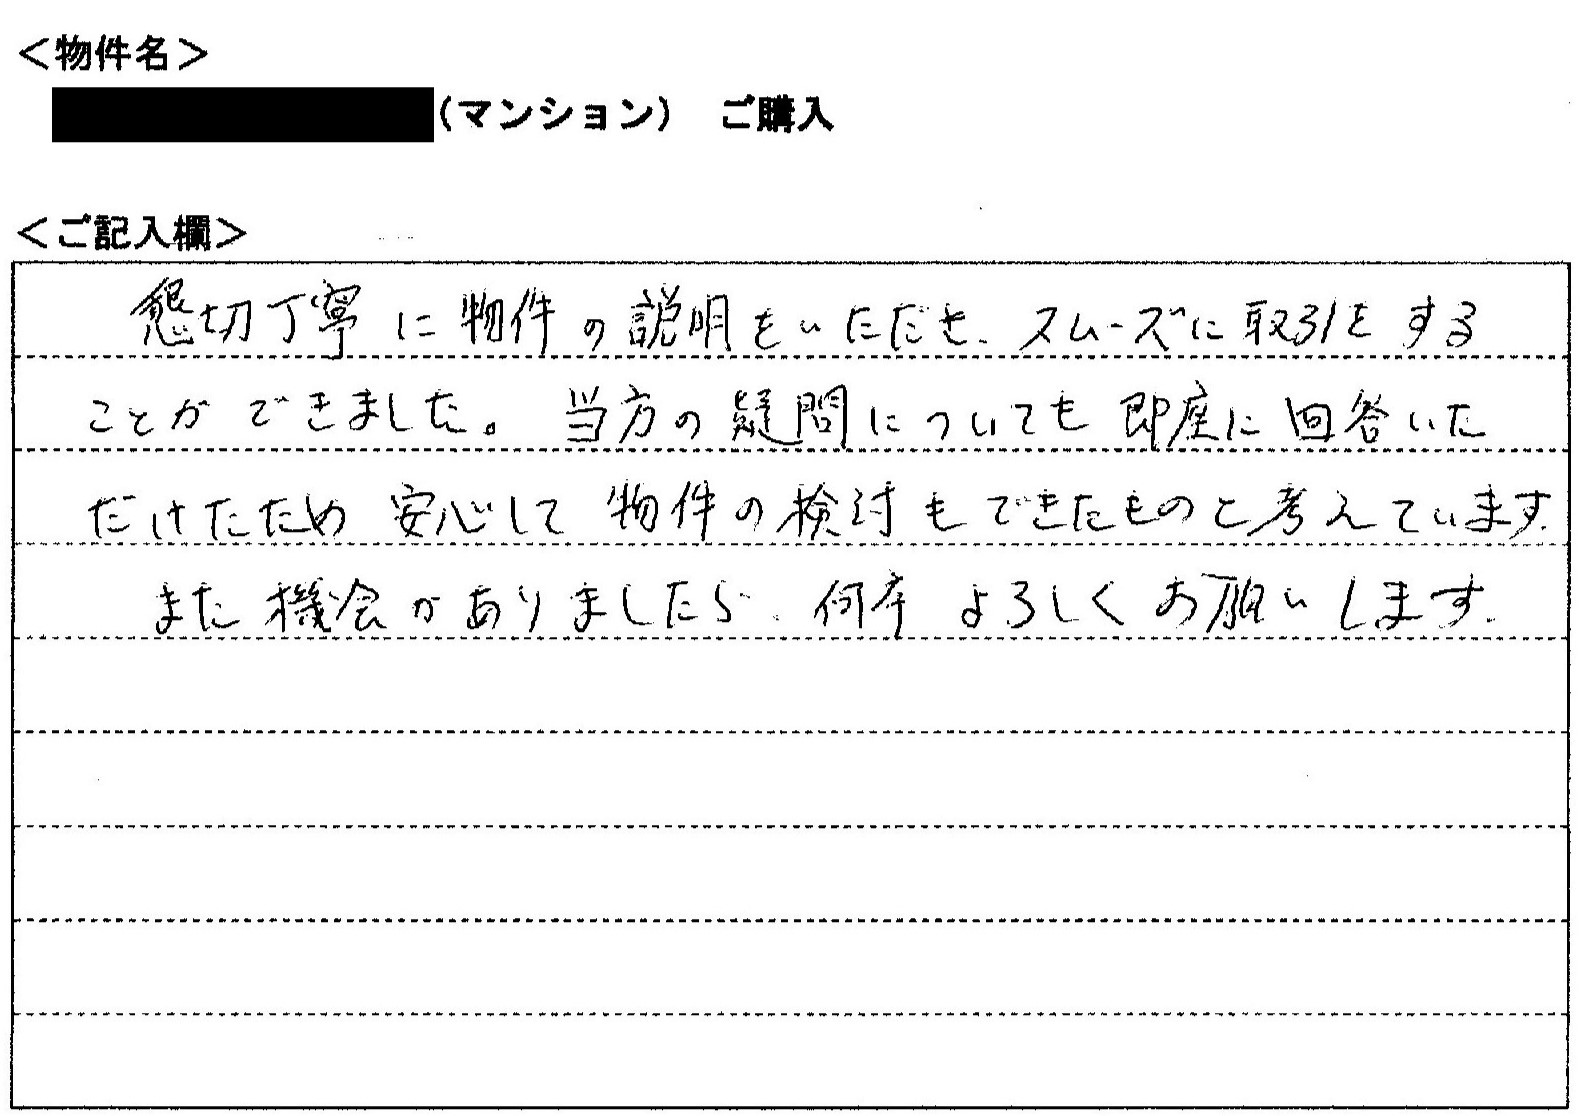 ＜物件名＞
(マンション)　ご購入
＜ご記入欄＞
懇切丁寧に物件の説明をいただき、スムーズに取引をする
ことができました。当方の疑問についても即座に回答いた
だけたため安心して物件の検討もできたものと考えています.
また機会がありましたら、何卒よろしくお願いします.